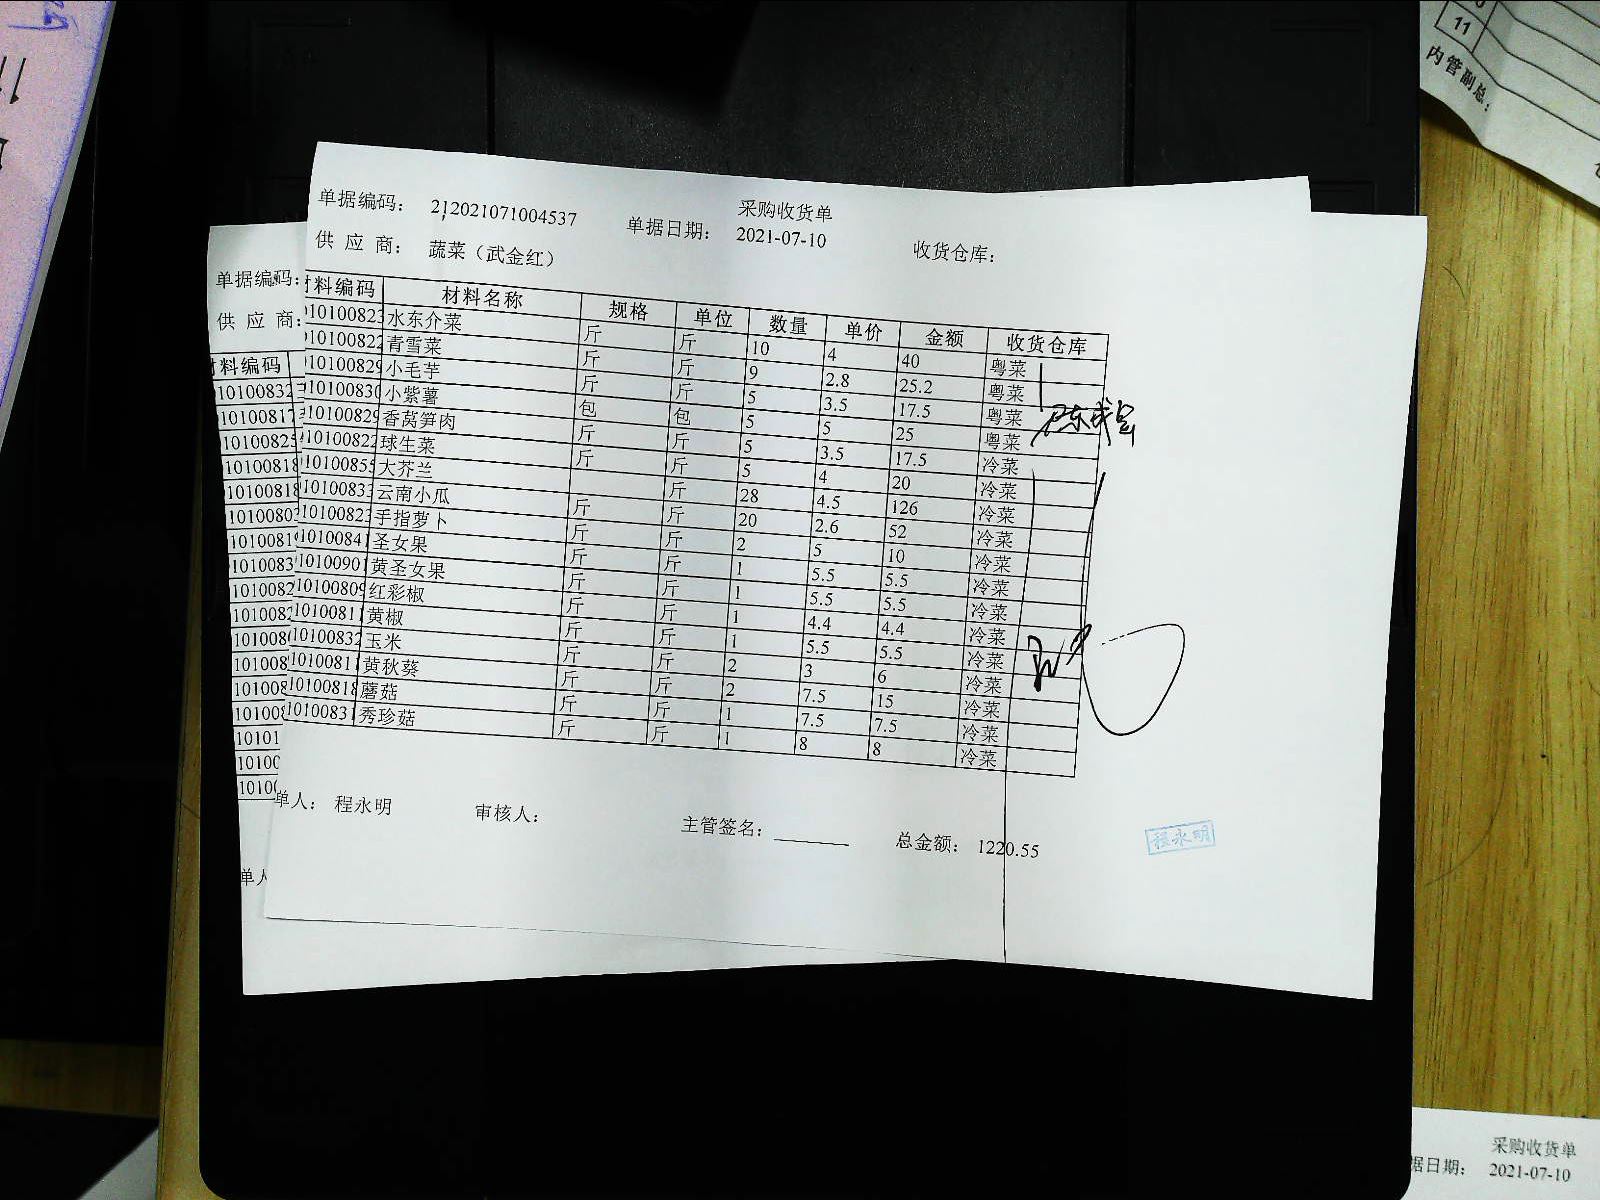 采购收货单
单据编码： 212021071004537 单据日期： 2021-07-10 收货仓库：
供 应 商： 蔬菜（武金红）
材料编码 材料名称 规格 单位 数量 单价 金额 收货仓库
10100823 水东介菜 斤 斤 10 4 40 粤菜
10100822 青雪菜 斤 斤 9 2.8 25.2 粤菜
10100829 小毛芋 斤 斤 5 3.5 17.5 粤菜
10100830 小紫薯 包 包 5 5 25 粤菜
10100829 香莴笋肉 斤 斤 5 3.5 17.5 冷菜
10100822 球生菜 斤 斤 5 4 20 冷菜
10100855 大芥兰 斤 28 4.5 126 冷菜
10100833 云南小瓜 斤 斤 20 2.6 52 冷菜
10100823 手指萝卜 斤 斤 2 5 10 冷菜
10100841 圣女果 斤 斤 1 5.5 5.5 冷菜
10100901 黄圣女果 斤 斤 1 5.5 5.5 冷菜
10100809 红彩椒 斤 斤 1 4.4 4.4 冷菜
10100811 黄椒 斤 斤 1 5.5 5.5 冷菜
10100832 玉米 斤 斤 2 3 6 冷菜
10100811 黄秋葵 斤 斤 2 7.5 15 冷菜
10100818 蘑菇 斤 斤 1 7.5 7.5 冷菜
10100831 秀珍菇 斤 斤 1 8 8 冷菜
单人： 程永明 审核人： 主管签名： 总金额： 1220.55
程永明
单据编码：
供 应 商：
材料编码
10100832
10100817
10100825
10100818
10100818
1010080
1010081
1010083
101008
101008
101008
101008
101008
10100
10101
10100
10100
单人
11
内管副总：
采购收货单
据日期： 2021-07-10